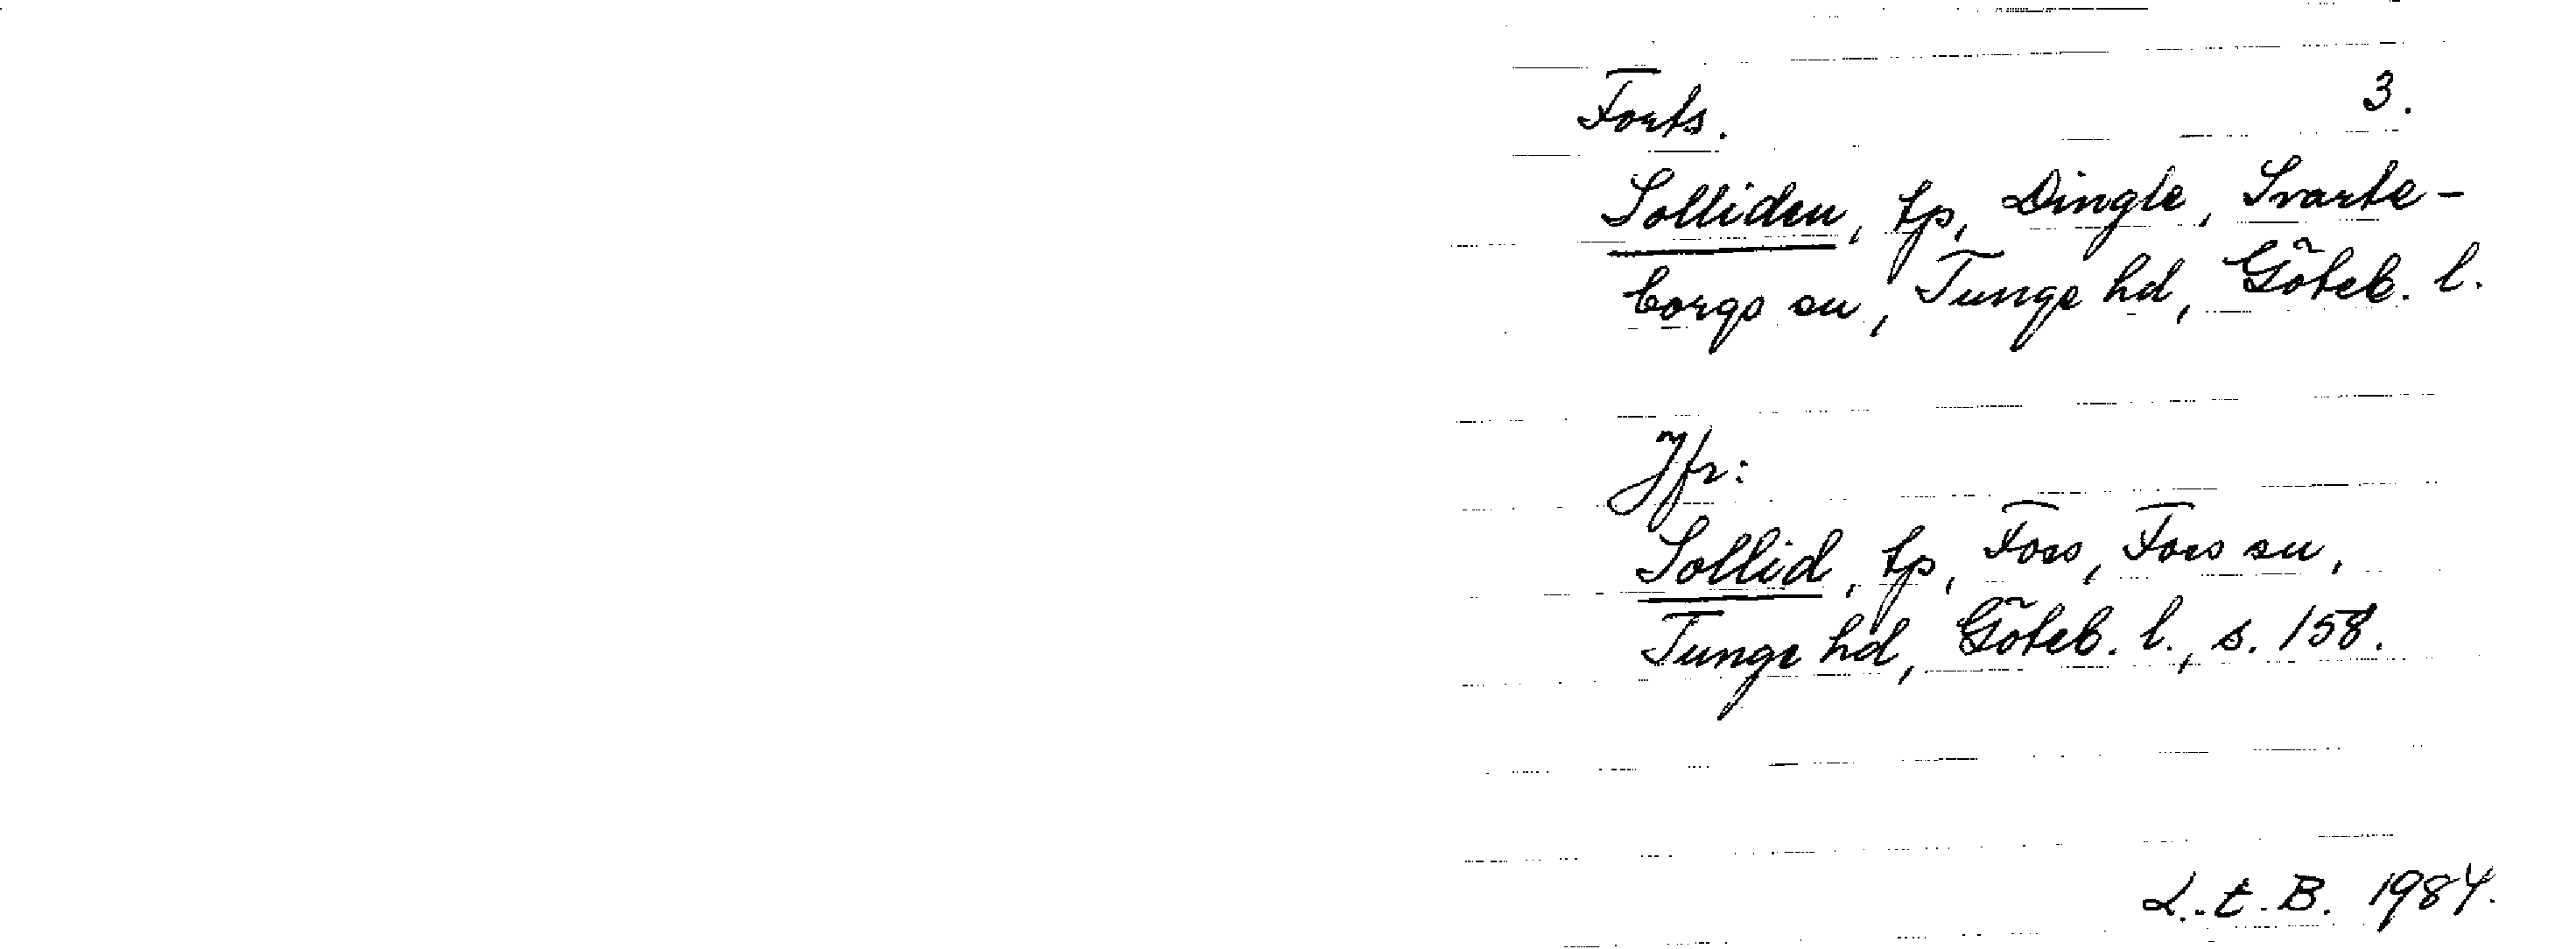 Forts. 3.
Solliden, tp, Dingle, Svarte-
borgs sn, Tunge hd, Göteb. l.
Jfr:
Sollid, tp, Foss, Foss sn,
Tunge hd, Göteb. l., s. 158.
L. t. B. 1984.